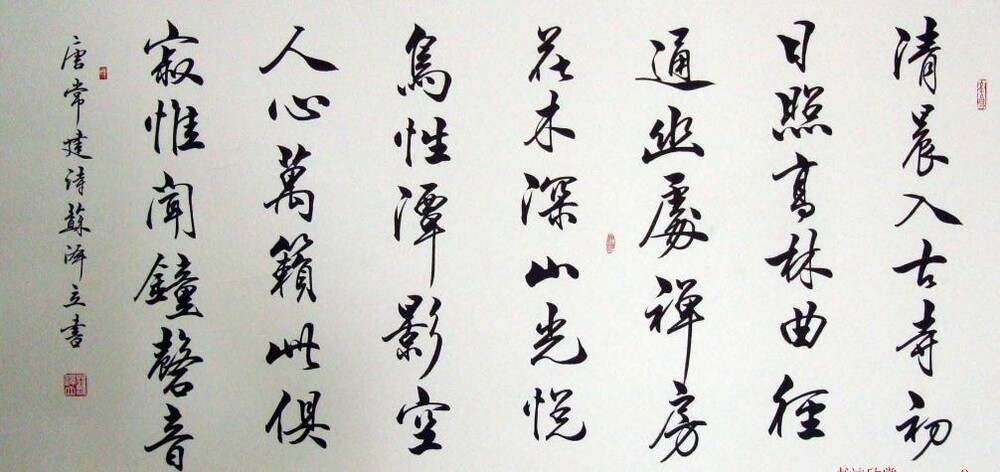 清晨入古寺初
日照高林曲徑
通幽處禪房
花木深山光悅
鳥性潭影空
人心萬籟此俱
寂惟聞鐘磬音
唐常建詩蘇澤立書